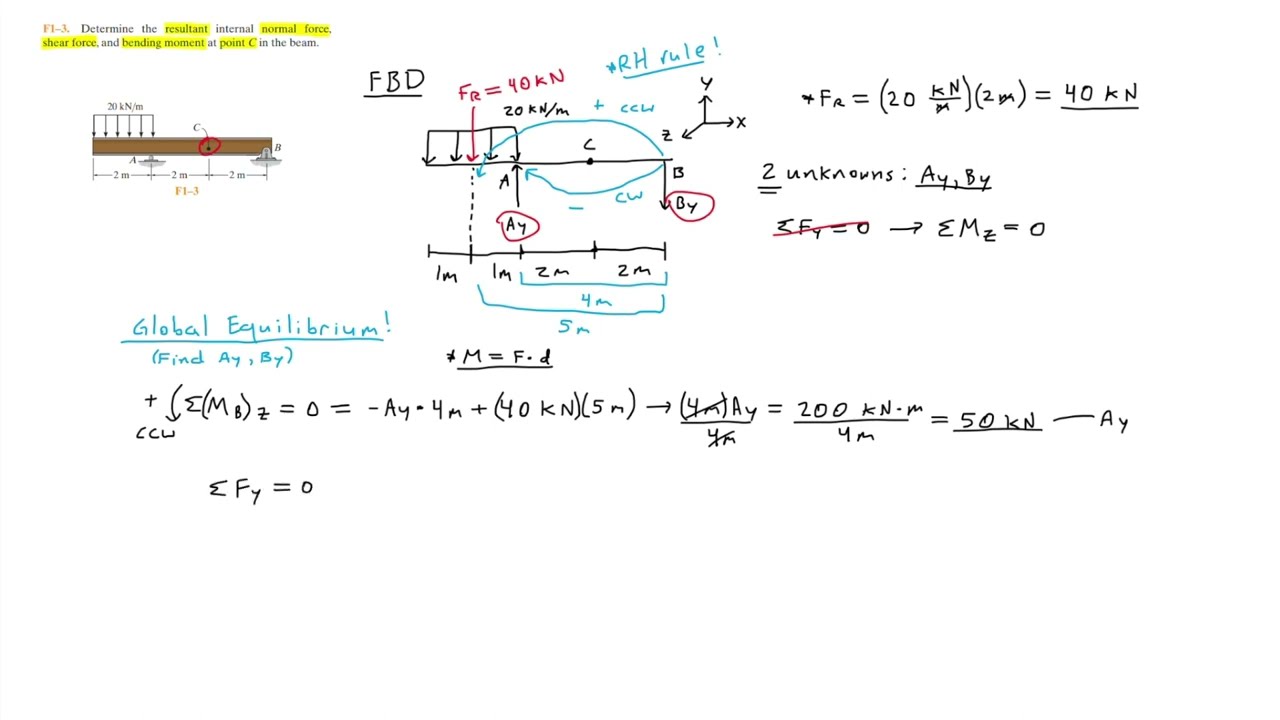 F1–3. Determine the resultant internal normal force,
shear force, and bending moment at point C in the beam.
20 kN/m
C
A
B
2 m
2 m
2 m
F1–3
FBD
FR = 40 kN
*RH rule!
20 kN/m
+ CCW
Y
X
Z
C
A
B
- CW
Ay
By
1m
1m
2m
2m
4m
5m
*FR = (20 kN/m)(2m) = 40 kN
2 unknowns: Ay, By
ΣFy = 0 → ΣMz = 0
Global Equilibrium!
(Find Ay, By)
*M = F·d
+ CCW Σ(MB)z = 0 = -Ay·4m + (40 kN)(5m) → (4m)Ay/4m = 200 kN·m/4m = 50 kN — Ay
ΣFy = 0